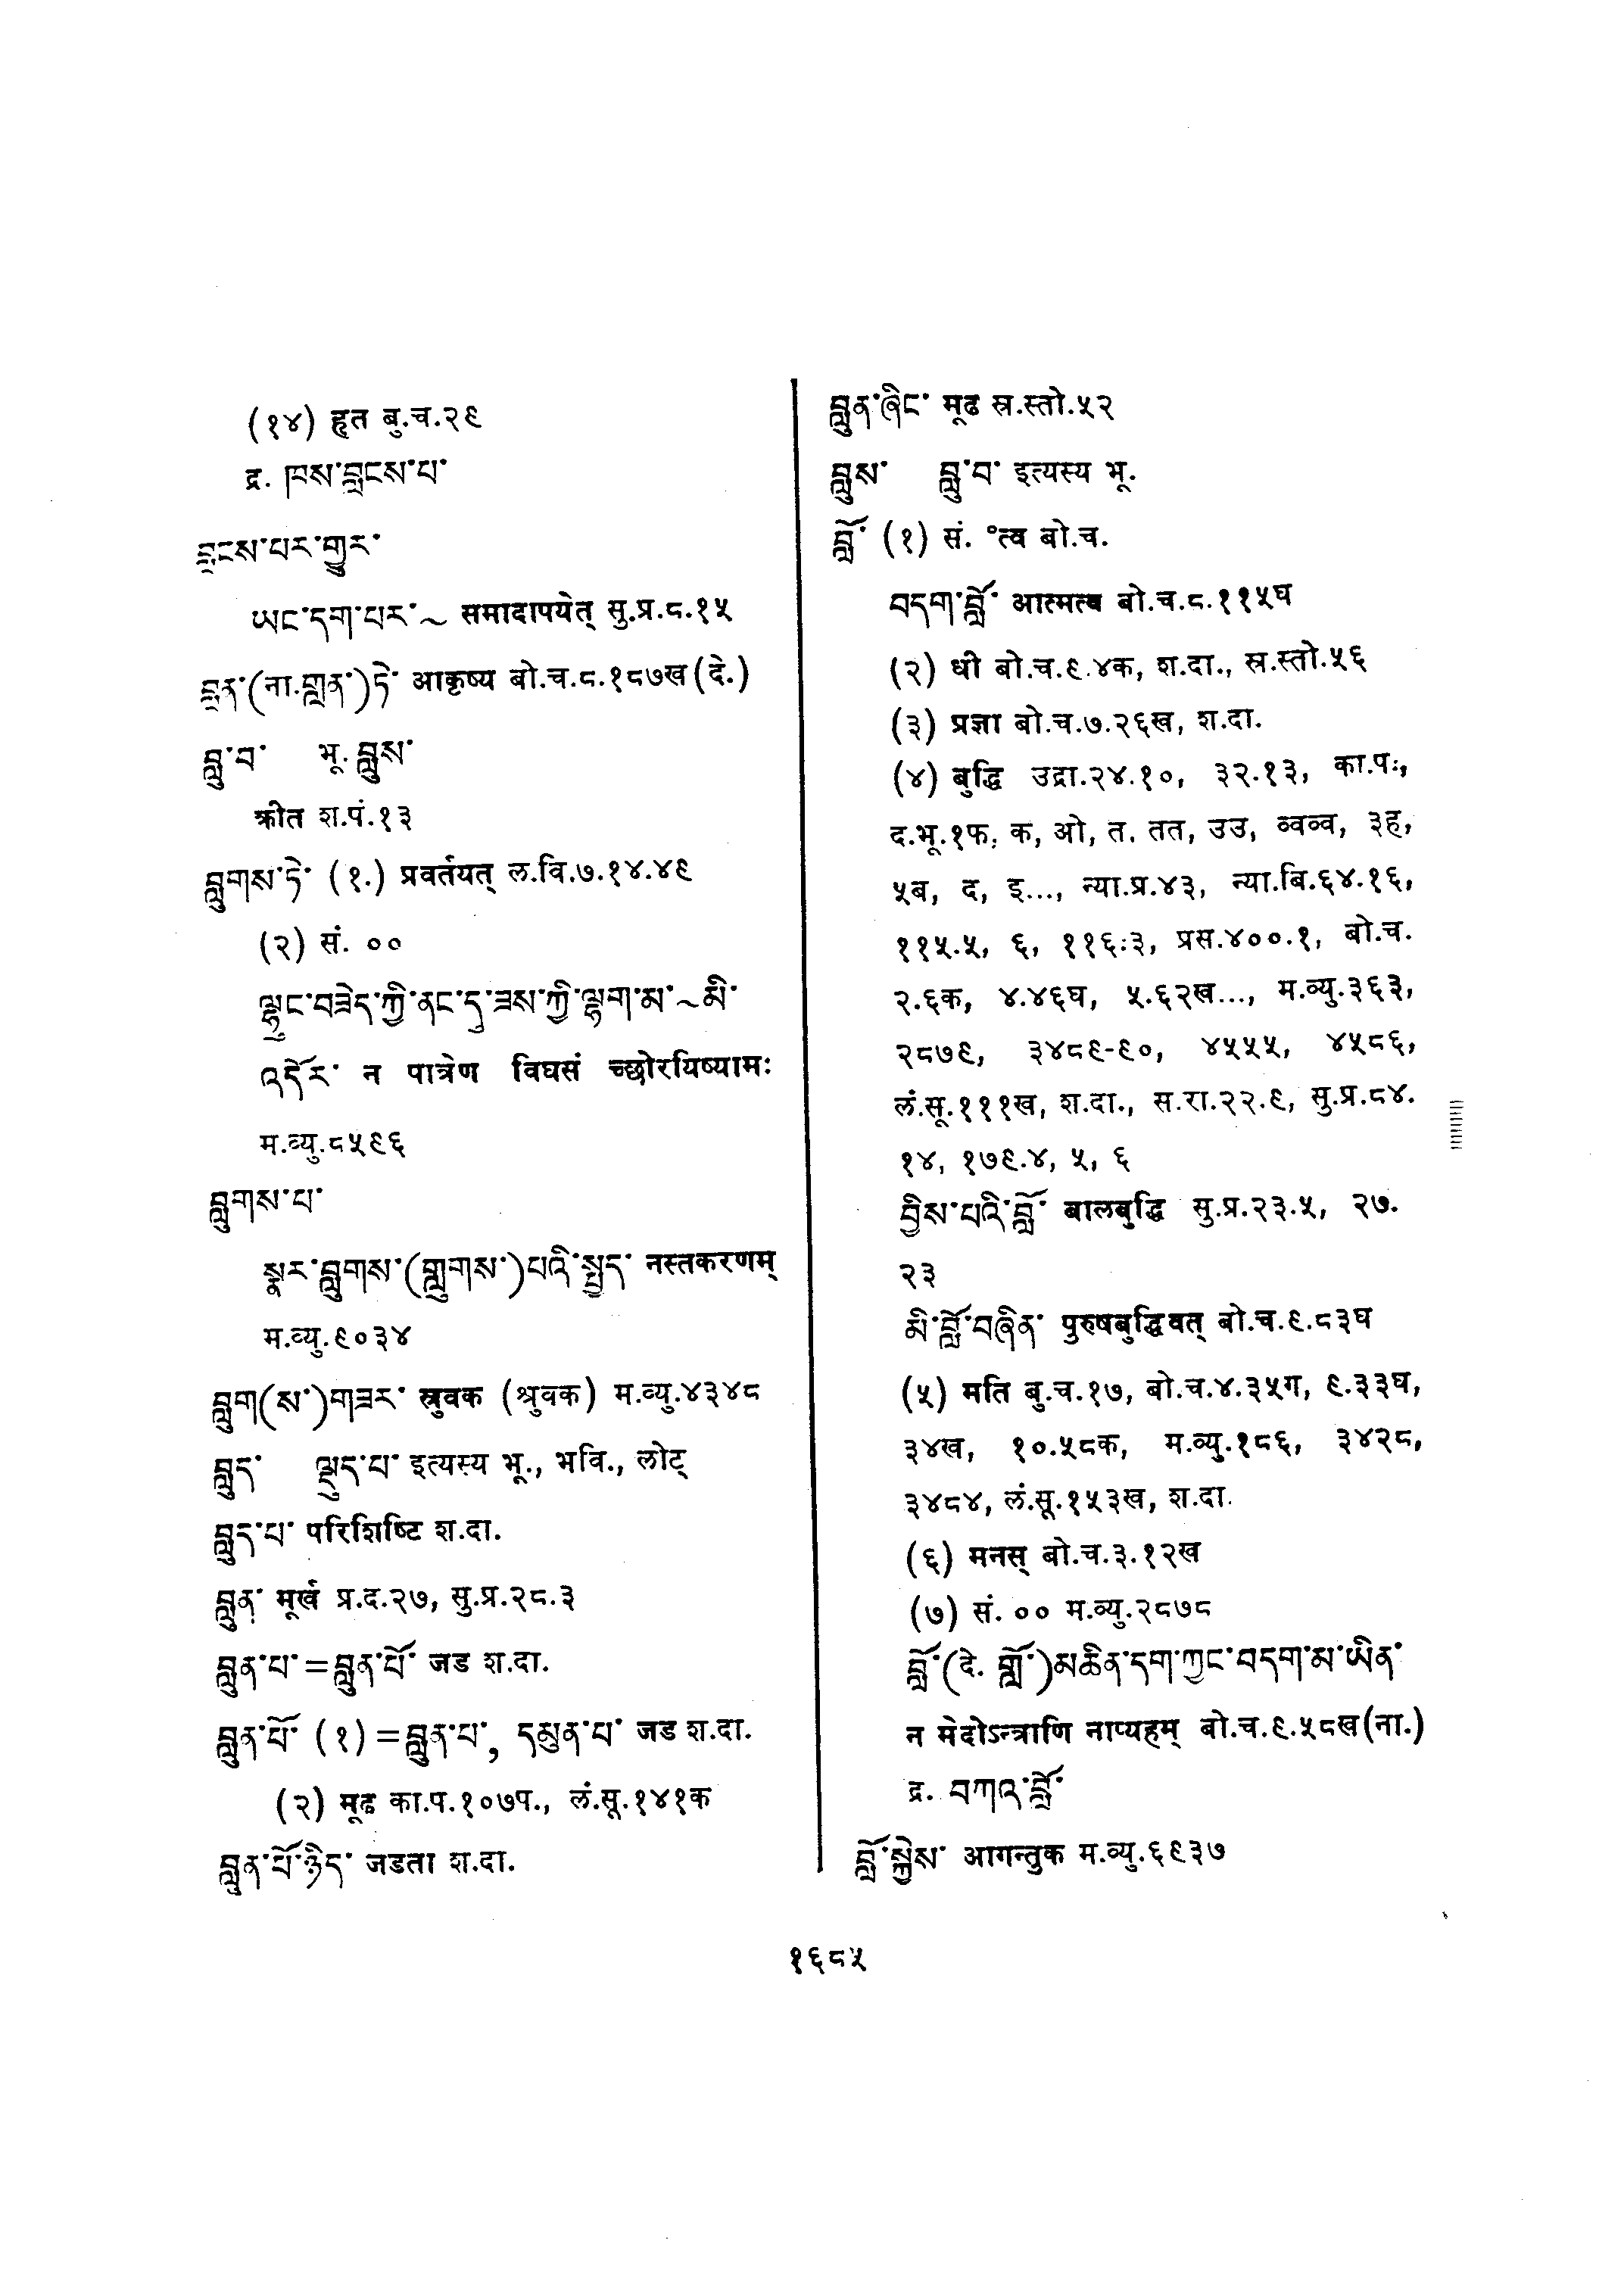 (१४) हृत बु.च.२९
द्र. ཁས་བླངས་པ་
བླངས་པར་གྱུར་
ཡང་དག་པར་~ समादापयेत् सु.प्र.८.१५
བླན་(ना.གླན་)ཏེ་ आकृष्य बो.च.८.१८७ख(दे.)
བླུ་བ་ भू. བླུས་
क्रीत श.पं.१३
བླུགས་ཏེ་ (१.) प्रवर्तयत् ल.वि.७.१४.४९
(२) सं. ००
ལྷུང་བཟེད་ཀྱི་ནང་དུ་ཟས་ཀྱི་ལྷག་མ་~མི་
འདོར་ न पात्रेण विघसं च्छोरयिष्यामः
म.व्यु.८५९६
བླུགས་པ་
སྣར་བླུགས་(གླུགས་)པའི་སྤྱད་ नस्तकरणम्
म.व्यु.९०३४
བླུག(ས་)གཟར་ स्रुवक (श्रुवक) म.व्यु.४३४८
བླུད་ ལྡུད་པ་ इत्यस्य भू., भवि., लोट्
བླུད་པ་ परिशिष्टि श.दा.
བླུན་ मूर्ख प्र.द.२७, सु.प्र.२८.३
བླུན་པ་=བླུན་པོ་ जड श.दा.
བླུན་པོ་ (१) =བླུན་པ་, དམུན་པ་ जड श.दा.
(२) मूढ का.प.१०७प., लं.सू.१४१क
བླུན་པོ་ཉིད་ जडता श.दा.
བླུན་ཞིང་ मूढ स्र.स्तो.५२
བླུས་ བླུ་བ་ इत्यस्य भू.
བློ་ (१) सं. °त्व बो.च.
བདག་བློ་ आत्मत्व बो.च.८.११५घ
(२) धी बो.च.९.४क, श.दा., स्र.स्तो.५६
(३) प्रज्ञा बो.च.७.२६ख, श.दा.
(४) बुद्धि उद्रा.२४.१०, ३२.१३, का.पः,
द.भू.१फ, क, ओ, त. तत, उउ, व्वव्व, ३ह,
५ब, द, इ..., न्या.प्र.४३, न्या.बि.६४.१६,
११५.५, ६, ११६:३, प्रस.४००.१, बो.च.
२.६क, ४.४६घ, ५.६२ख..., म.व्यु.३६३,
२८७९, ३४८९-९०, ४५५५, ४५८६,
लं.सू.१११ख, श.दा., स.रा.२२.९, सु.प्र.८४.
१४, १७९.४, ५, ६
བྱིས་པའི་བློ་ बालबुद्धि सु.प्र.२३.५, २७.
२३
མི་བློ་བཞིན་ पुरुषबुद्धिवत् बो.च.९.८३घ
(५) मति बु.च.१७, बो.च.४.३५ग, ९.३३घ,
३४ख, १०.५८क, म.व्यु.१८६, ३४२८,
३४८४, लं.सू.१५३ख, श.दा.
(६) मनस् बो.च.३.१२ख
(७) सं. ०० म.व्यु.२८७८
བློ་(दे. གློ་)མཆིན་དག་ཀྱང་བདག་མ་ཡིན་
न मेदोऽन्त्राणि नाप्यहम् बो.च.९.५८ख(ना.)
द्र. བཀའ་བློ་
བློ་སྐྱེས་ आगन्तुक म.व्यु.६९३७
१६८५